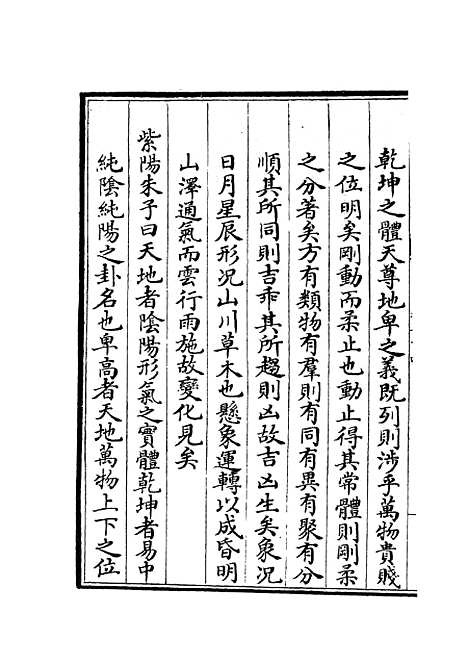 乾坤之體天尊地卑之義既列則涉乎萬物貴賤
之位明矣剛動而柔止也動止得其常體則剛柔
之分著矣方有類物有羣則有同有異有聚有分
順其所同則吉乖其所趨則凶故吉凶生矣象況
日月星辰形況山川草木也懸象運轉以成昏明
山澤通氣而雲行雨施故變化見矣
紫陽朱子曰天地者陰陽形氣之實體乾坤者易中
純陰純陽之卦名也卑高者天地萬物上下之位